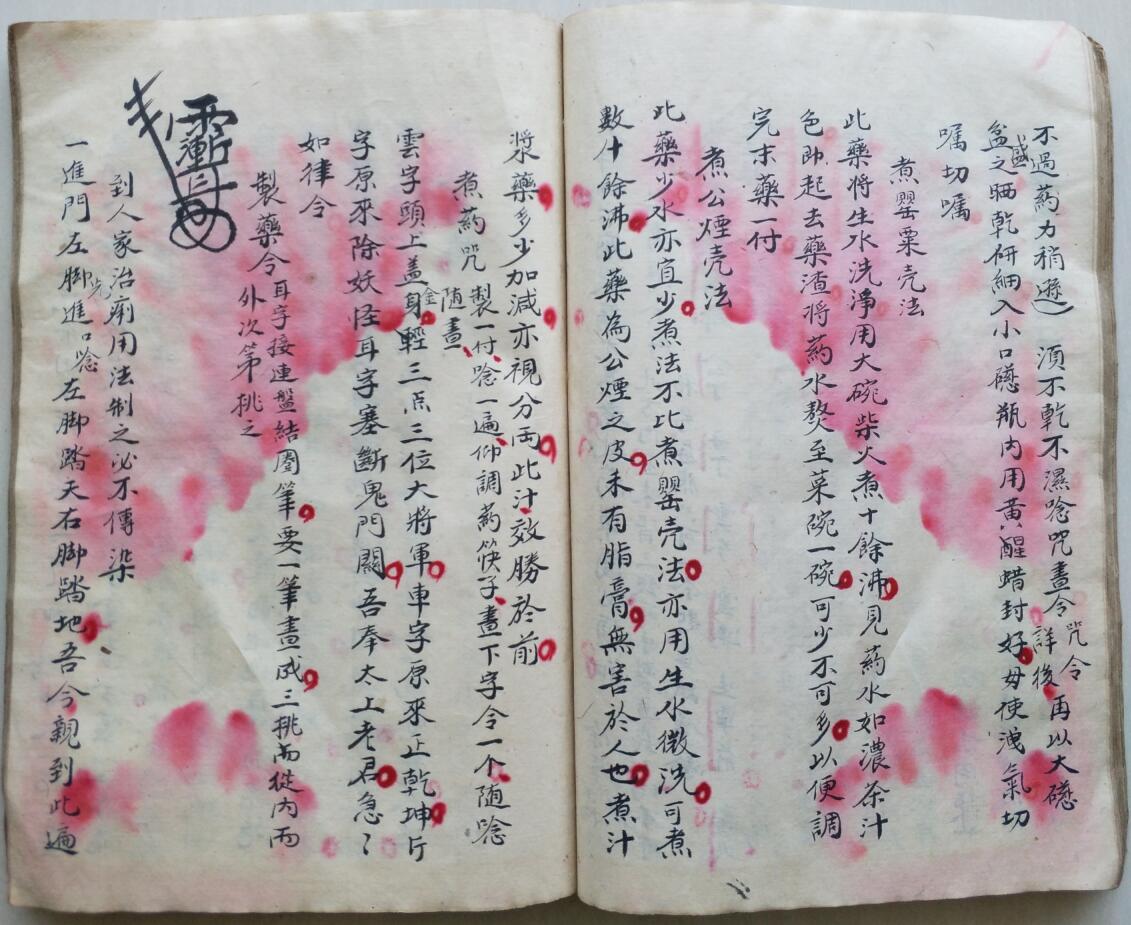 不過药力稍遜 須不乾不濕唸咒畫令咒令詳後再以大礠
盆盛之晒乾研細入小口礠瓶內用黃醒蜡封好毋使洩氣切
囑切囑
煮罌粟壳法
此藥將生水洗淨用大碗柴火煮十餘沸見药水如濃茶汁
色即起去藥渣將药水熬至菜碗一碗可少不可多以便調
完末藥一付
煮公煙壳法
此藥少水亦宜少煮法不比煮罌壳法亦用生水微洗可煮
數什餘沸此藥為公煙之皮未有脂膏無害於人也煮汁
漿藥多少加減亦視分両此汁效勝於前
煮药咒 製一付唸一遍仰調药筷子畫下字令一个随唸随畫
雲字頭上盖金身輕三点三位大將軍車字原來正乾坤斤
字原來除妖怪耳字塞斷鬼門闗吾奉太上老君急〻
如律令
製藥令耳字接連盤結圈筆要一筆畫成三挑而從內而
外次第挑之
到人家治痢用法制之必不傳染
一進門左脚先進口唸左脚踏天右脚踏地吾今親到此遍